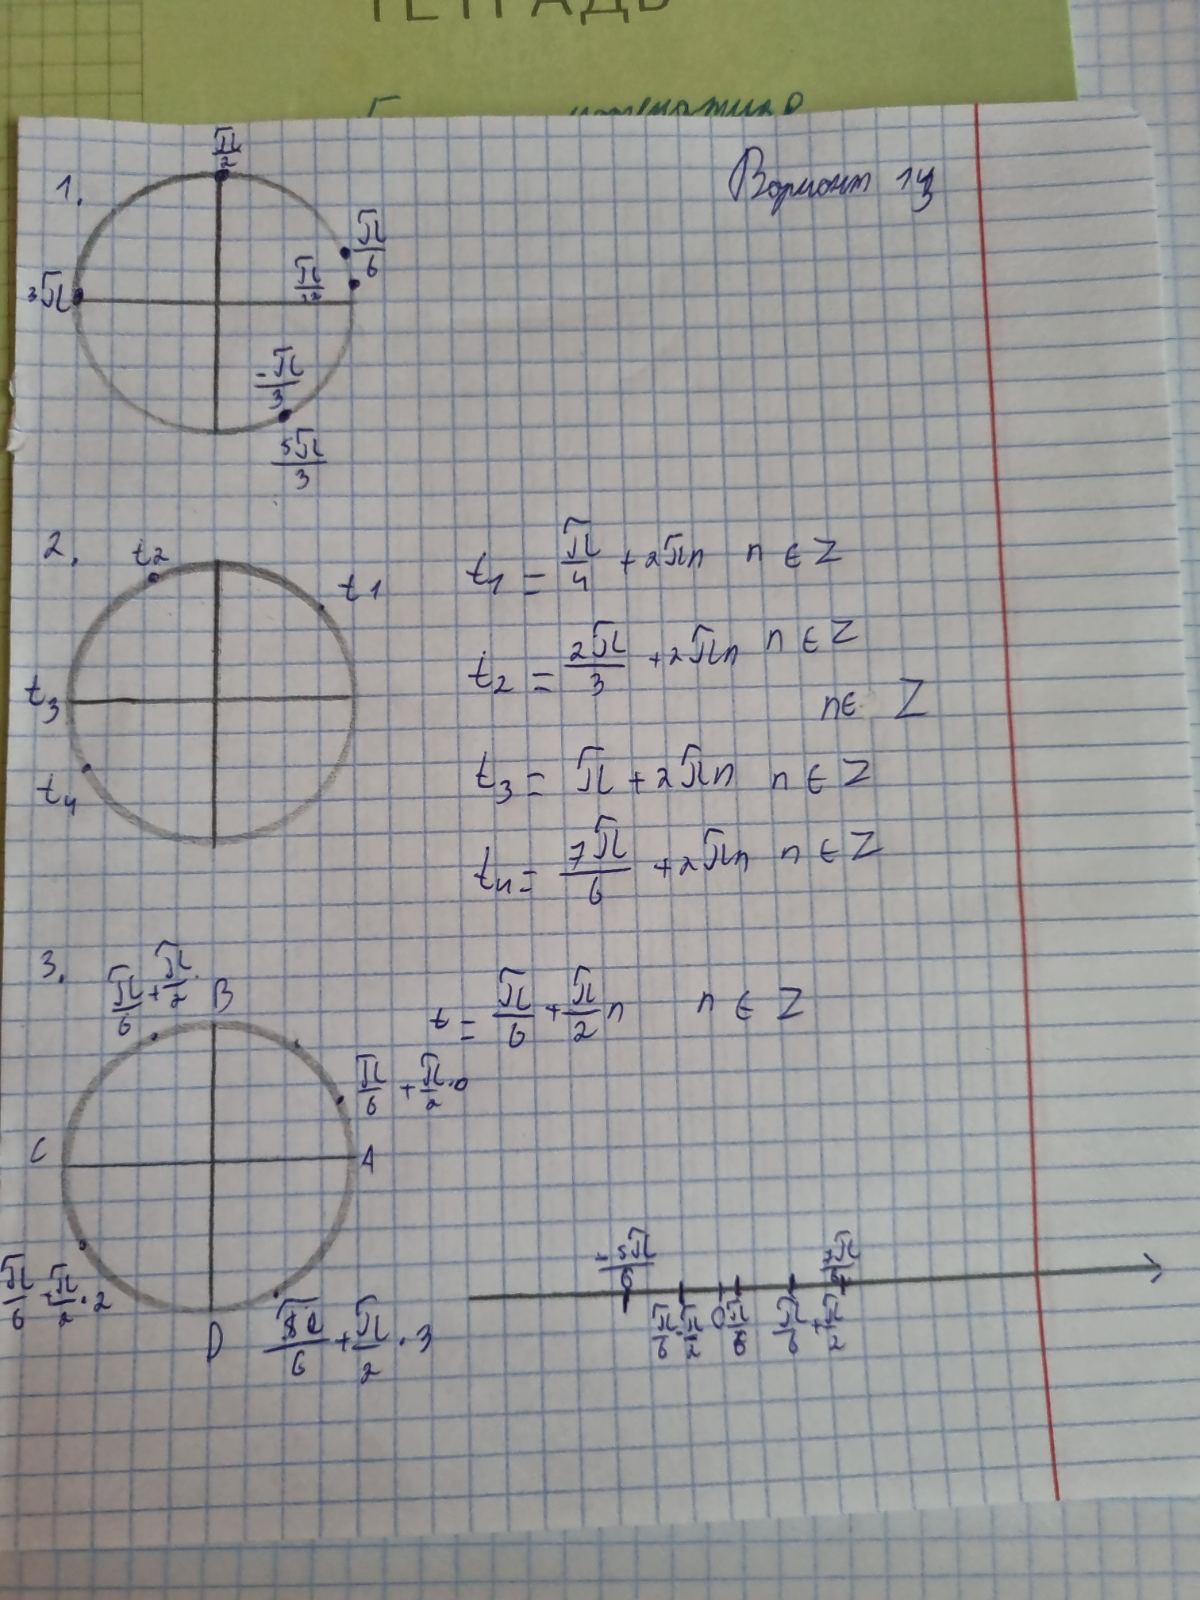 ТЕТРАДЬ
Вариант 13
1.
π/2
π/6
π/12
3π
-π/3
5π/3
2.
t2
t1
t3
t4
t1 = π/4 + 2πn n ∈ Z
t2 = 2π/3 + 2πn n ∈ Z
n ∈ Z
t3 = π + 2πn n ∈ Z
t4 = 7π/6 + 2πn n ∈ Z
3.
π/6 + π/2
B
t = π/6 + π/2 n n ∈ Z
π/6 + π/2 · 0
C
A
π/6 + π/2 · 2
D
π/6 + π/2 · 3
-5π/6
π/6 - π/2
0
π/6
π/6 + π/2
7π/6